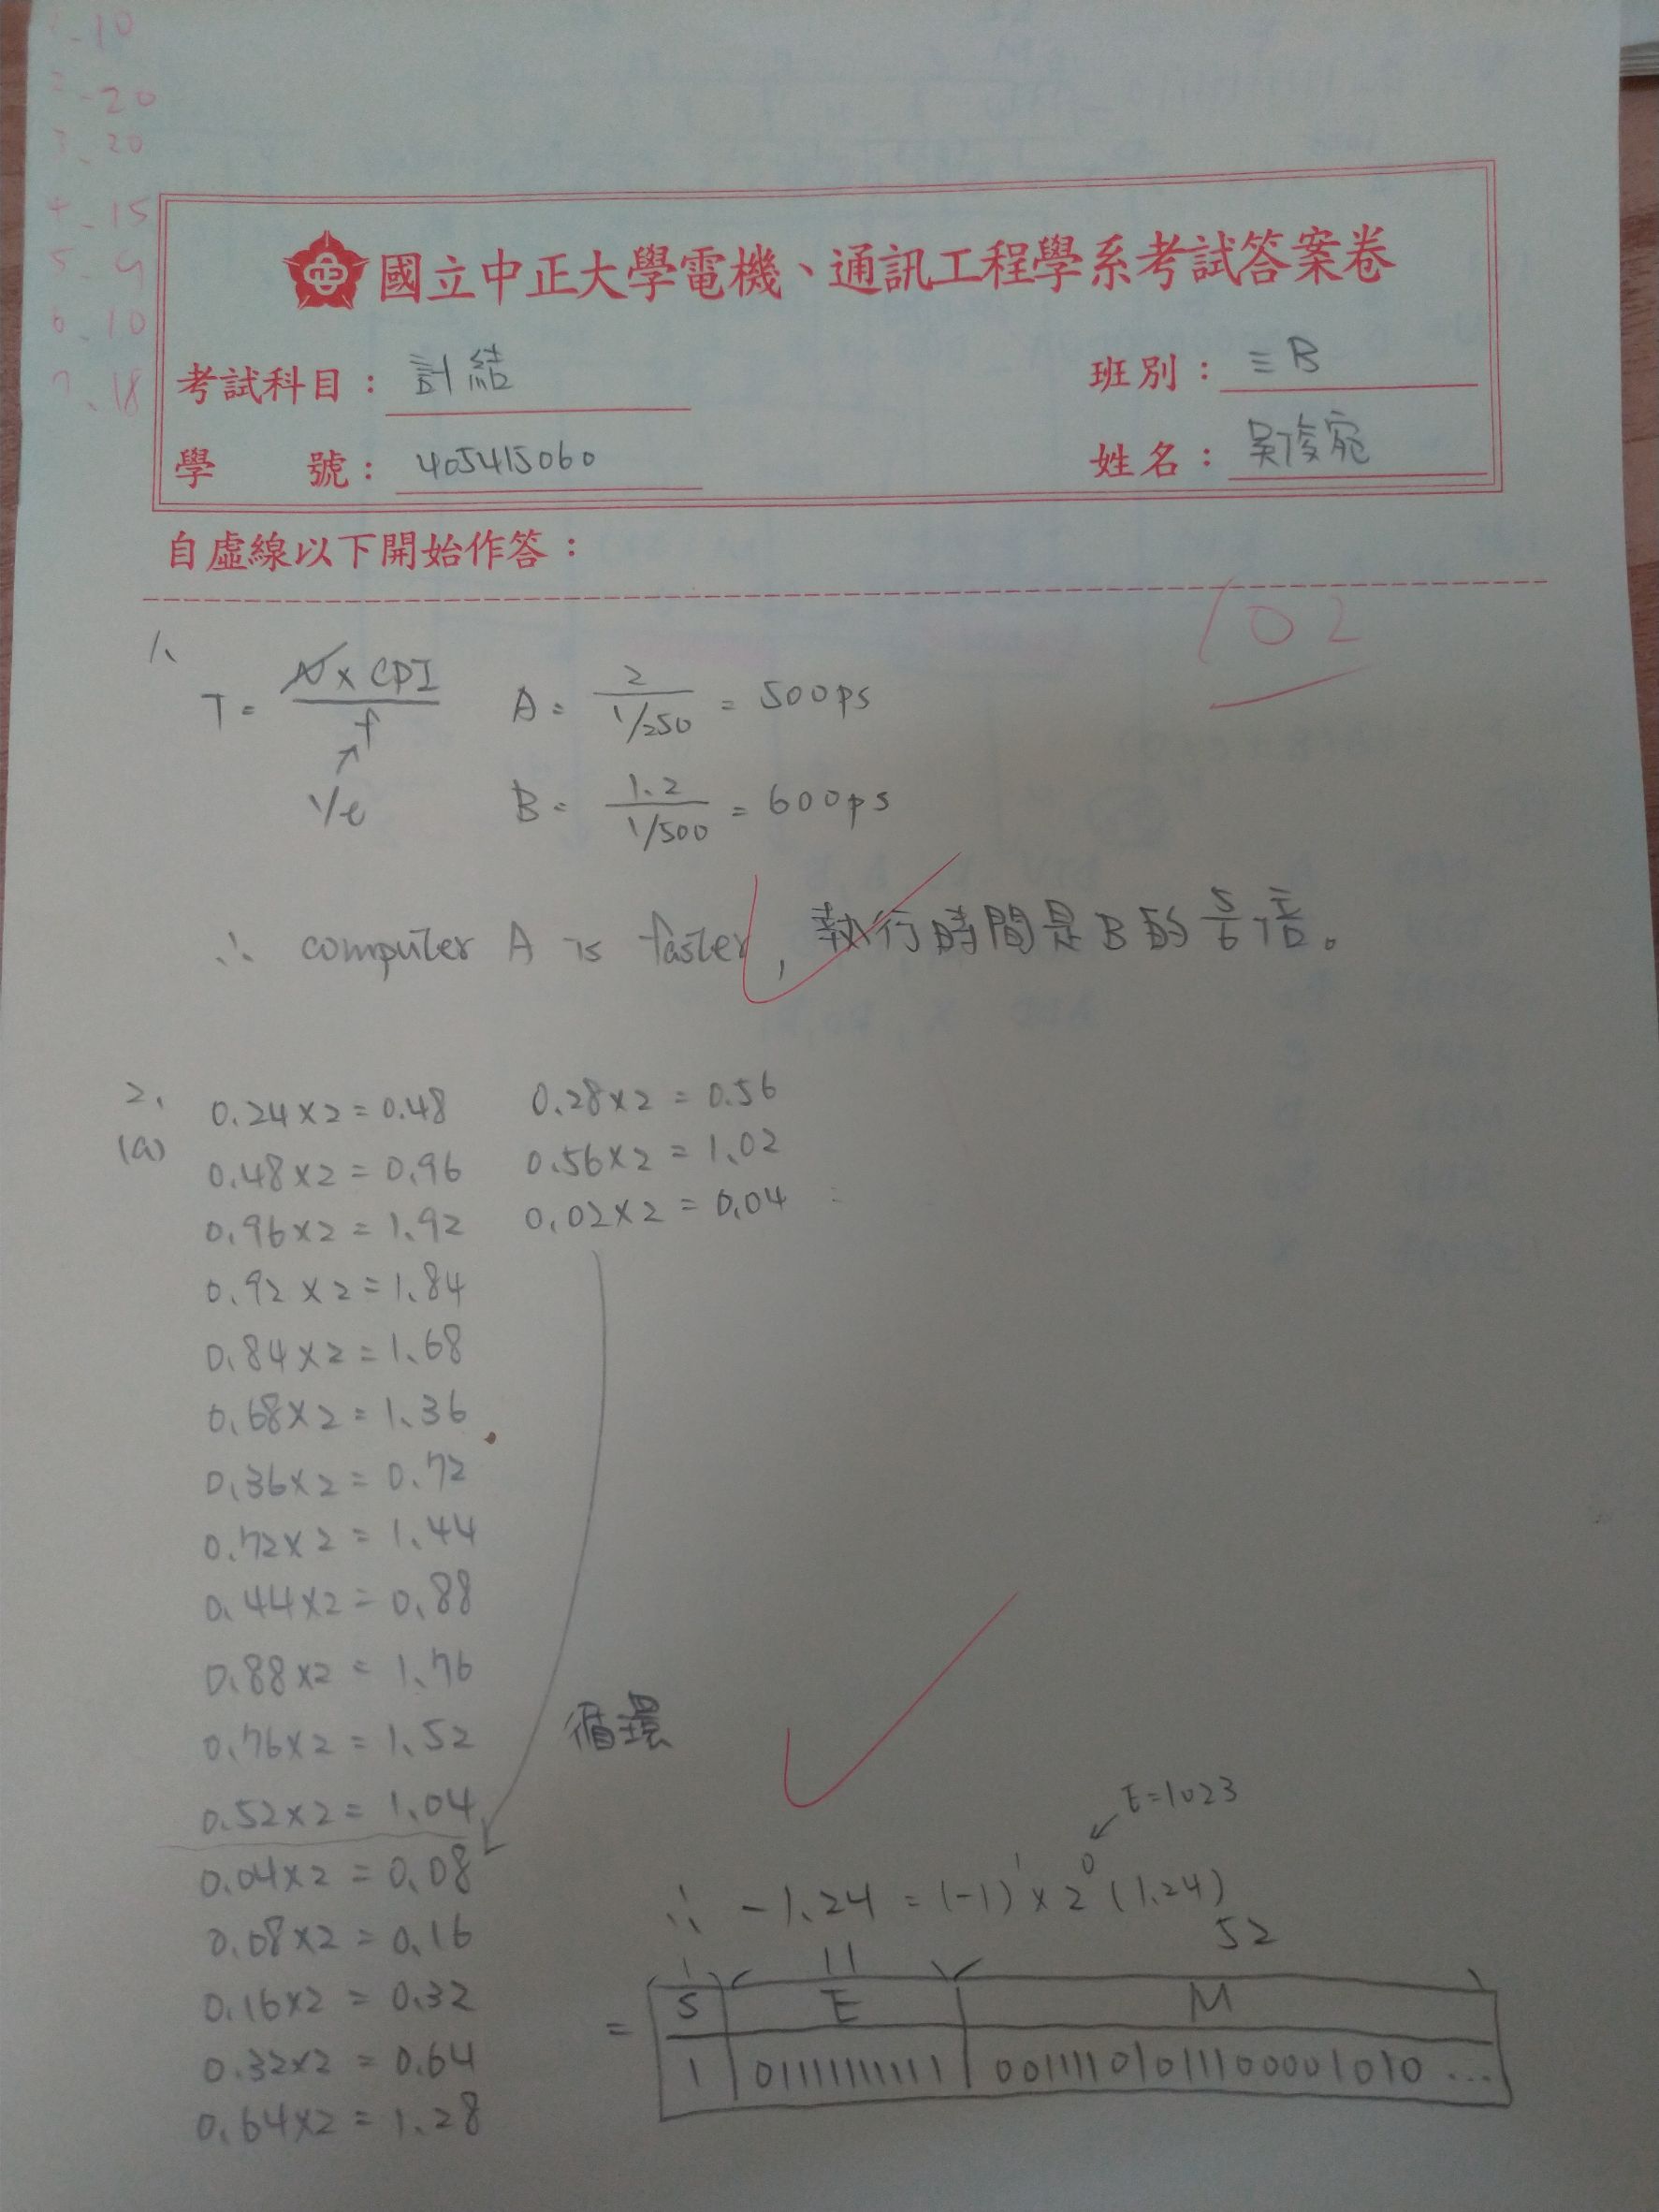 1.10
2.20
3.20
4.15
5.9
6.10
7.18
國立中正大學電機、通訊工程學系考試答案卷
考試科目：計結
班別：三B
學 號：405415060
姓名：吳俊宛
自虛線以下開始作答：
102
1、
T = N×CPI / f
1/t
A = 2 / (1/250) = 500ps
B = 1.2 / (1/500) = 600ps
∴ computer A is faster, 執行時間是B的 5/6 倍。
2、
(a)
0.24×2=0.48
0.48×2=0.96
0.96×2=1.92
0.92×2=1.84
0.84×2=1.68
0.68×2=1.36
0.36×2=0.72
0.72×2=1.44
0.44×2=0.88
0.88×2=1.76
0.76×2=1.52
0.52×2=1.04
0.04×2=0.08
0.08×2=0.16
0.16×2=0.32
0.32×2=0.64
0.64×2=1.28
0.28×2=0.56
0.56×2=1.02
0.02×2=0.04
循環
E=1023
∴ -1.24 = (-1)^1 × 2^0 (1.24)
1 11 52
= S E M
1 01111111111 00111101011100001010 ...